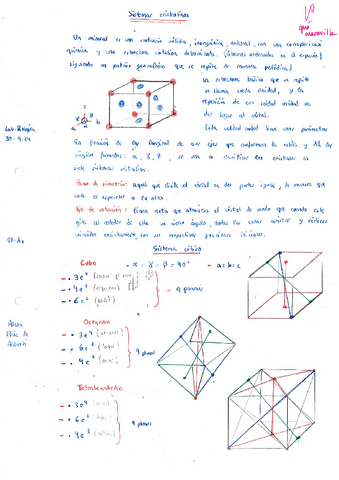 Sistemas cristalinos
qué
maravilla
Un mineral es una sustancia sólida, inorgánica, natural, con una composición
química y una estructura cristalina determinada. (átomos ordenados en el espacio)
siguiendo un patrón geométrico que se repite de manera periódica)
La estructura básica que se repite
se llama celda unidad, y la
repetición de esa celdad unidad da
dar lugar al cristal.
Cada celdad unidad tiene unos parámetros
c
a
b
En función de la longitud de los ejes que conforman la celda y de los
ángulos formados: α, γ, β, se van a clasificar los cristales en
siete sistemas cristalinos.
Plano de simetría: aquel que divide el cristal en dos partes iguales, de manera que
una es especular a la otra.
Eje de rotación: línea recta que atraviesa el cristal de modo que cuando este
gira al rededor de ella un cierto ángulo, todas las caras, aristas y vértices
coinciden exactamente con sus respectivas posiciones iniciales.
Sistema cúbico
Cubo
- α = γ = β = 90°
- a=b=c
- • 3e⁴
- • 4e³
- • 6e²
9 planos
Octaedro
- • 3e⁴
- • 6e²
- • 4e³
9 planos
- • 3e⁴
- • 6e²
- • 4e³
9 planos